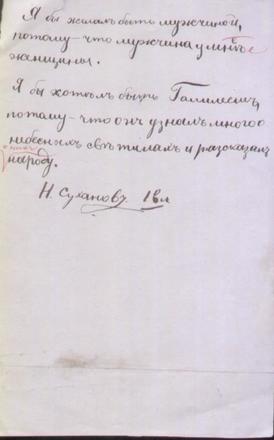 Я бы желалъ быть мужчиной,
потому-что мужчина умнѣе
женщины.
Я бы хотѣлъ быть Галилеемъ,
потому-что онъ узналъ много о
небесныхъ свѣтилахъ и разсказалъ
народу.
Н. Сухановъ. 13 л